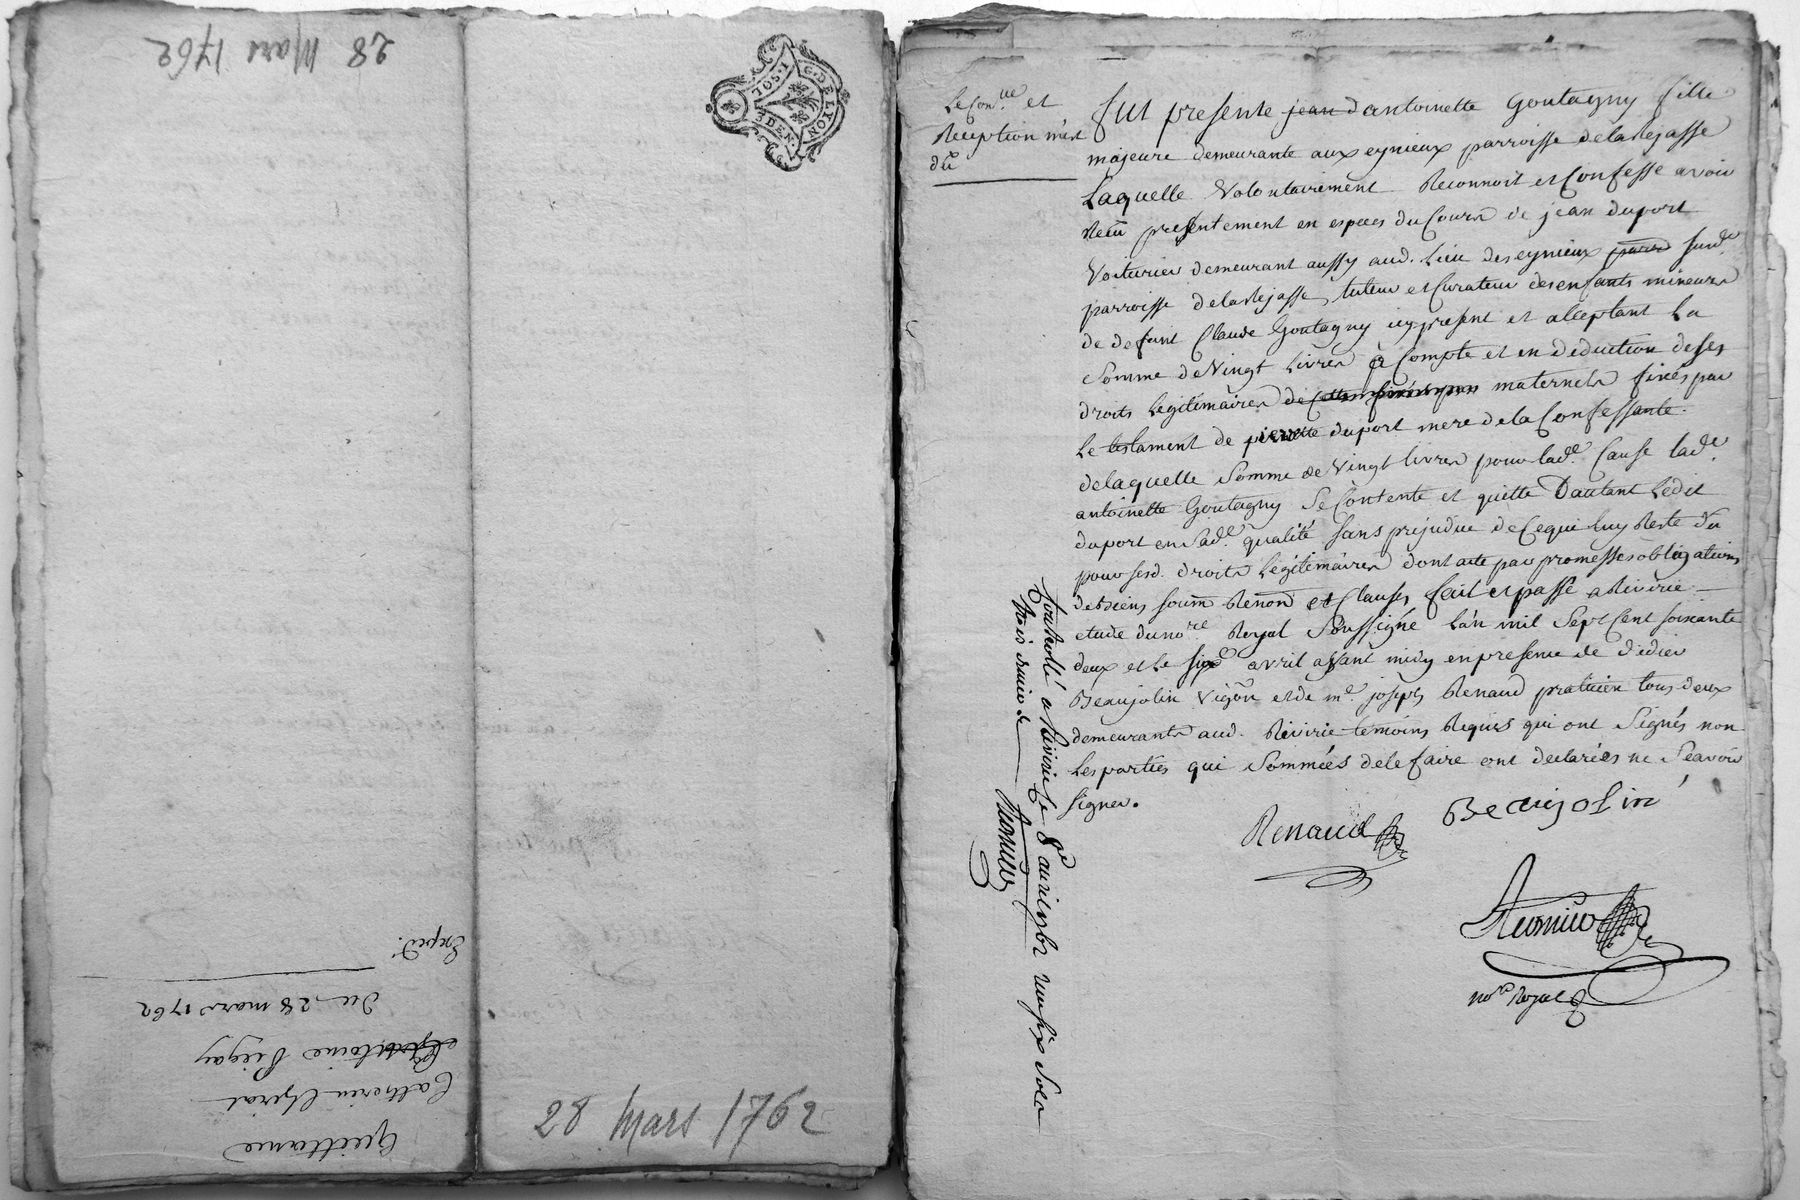 28 Mars 1762
G. DE LYON
1. SOL
3 DEN.
Exped.
Du 28 mars 1762
Antoine Piegay
Catherin
Quittance
28 Mars 1762
Le Con.lle et
Reception n'est
dû
fut presente jean d antoinette Goutagny fille
majeure demeurante aux eynieux parroisse de la Rejasse
Laquelle Volontairement Reconnoit et Confesse avoir
Reçû presentement en especes du Cours de jean duport
Voiturier demeurant aussy aud. Lieu des eynieux susd.e
parroisse de la Rejasse, tuteur et Curateur des enfants mineurs
de defunt Claude Goutagny icy present et acceptant La
Somme de Vingt Livres à Compte et en deduction de ses
droits Legitimaires maternels fixés par
Le testament de pierrette duport mere de la Confessante.
de laquelle Somme de Vingt livres pour lad.e Cause lad.e
antoinette Goutagny Se Contente et quitte Dautant Ledit
duport en Sad.e qualité sans prejudice de Ce qui luy Reste Du
pour sesd. droits Legitimaires dont acte par promesses obligations
de Biens soum Renon et Clauses fait et passé a Riverie
etude du no.re Royal Soussigné L'an mil Sept Cent soixante
deux et Le six avril avant midy en presence de Didier
Beaujolin Vigon et de m.e joseph Renaud praticien tous deux
demeurants aud. Riverie temoins Requis qui ont Signés non
Les parties qui Sommées de le faire ont declarées ne Sçavoir
signer.
Renaud
Beaujolin
no.re Royal
Controllé a Riverie Le 8e avril 1762 Reçu six sols